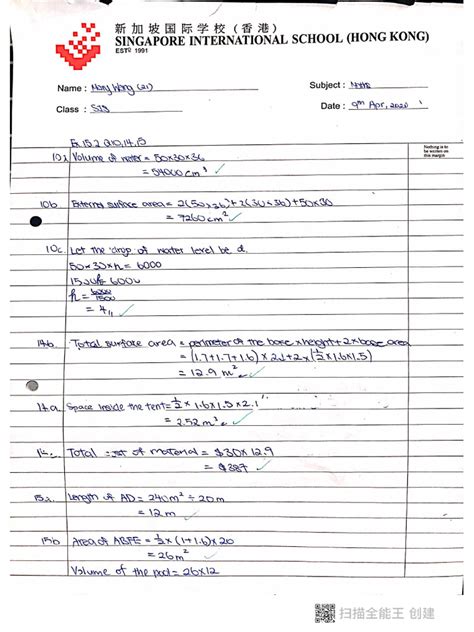 新加坡国际学校(香港)
SINGAPORE INTERNATIONAL SCHOOL (HONG KONG)
ESTD 1991
Name : Wong (21)
Subject : Maths
Class :
Date : 9th Apr, 2020
Nothing is to be written on this margin
Ex 15.2 Q10,14,15
Volume of water = 50×30×36
= 54000cm³ ✓
10b. External surface area = 2(50×36)+2(30×36)+50×30
= 7260cm² ✓
10c. Let the drop of water level be d.
50×30×h = 6000
1500h = 6000
h = 6000/1500
= 4 ✓
14b. Total surface area = perimeter of the base × height + 2 × base area
= (1.7+1.7+1.6) × 2.1 + 2 × (½×1.6×1.5)
= 12.9 m² ✓
14a. Space inside the tent = ½ × 1.6×1.5×2.1
= 2.52m³ ✓
14c. Total cost of material = $30×12.9
= $387 ✓
15a. Length of AD = 240m² ÷ 20m
= 12m ✓
15b Area of ABFE = ½×(1+1.6)×20
= 26m² ✓
Volume of the pool = 26×12
扫描全能王 创建